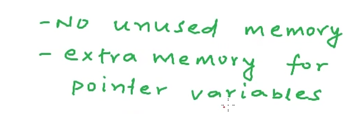 -No unused memory
- extra memory for
pointer variables